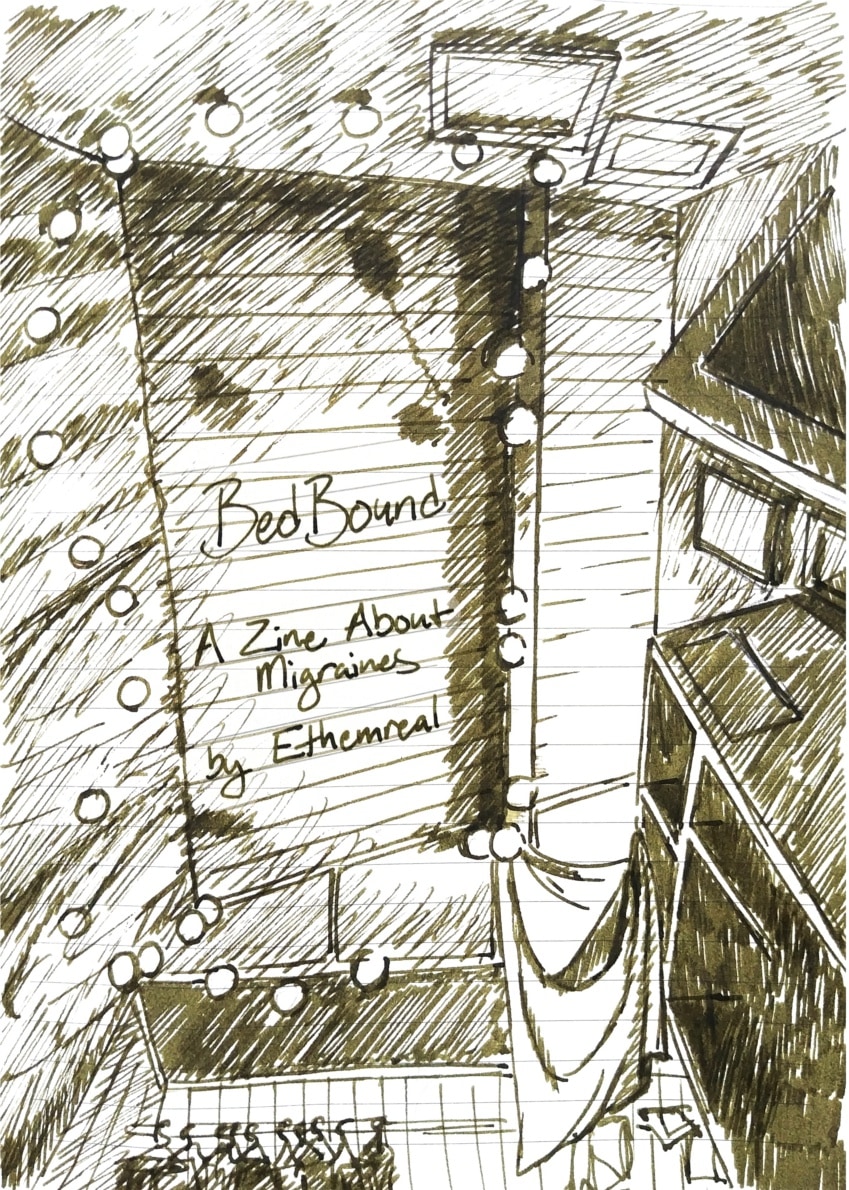 BedBound
A Zine About
Migraines
by Ethemreal